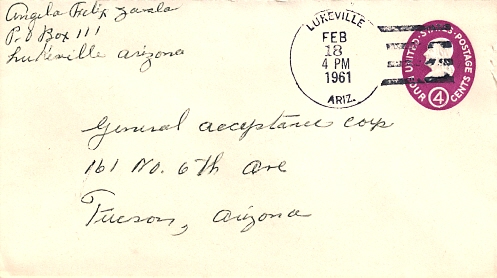 Angelo Felix Zavala
P.O Box 111
Lukeville Arizona
LUKEVILLE
FEB
18
4 PM
1961
ARIZ.
UNITED STATES POSTAGE
FOUR 4 CENTS
General Acceptance Corp
161 No. 6th Ave
Tucson, Arizona